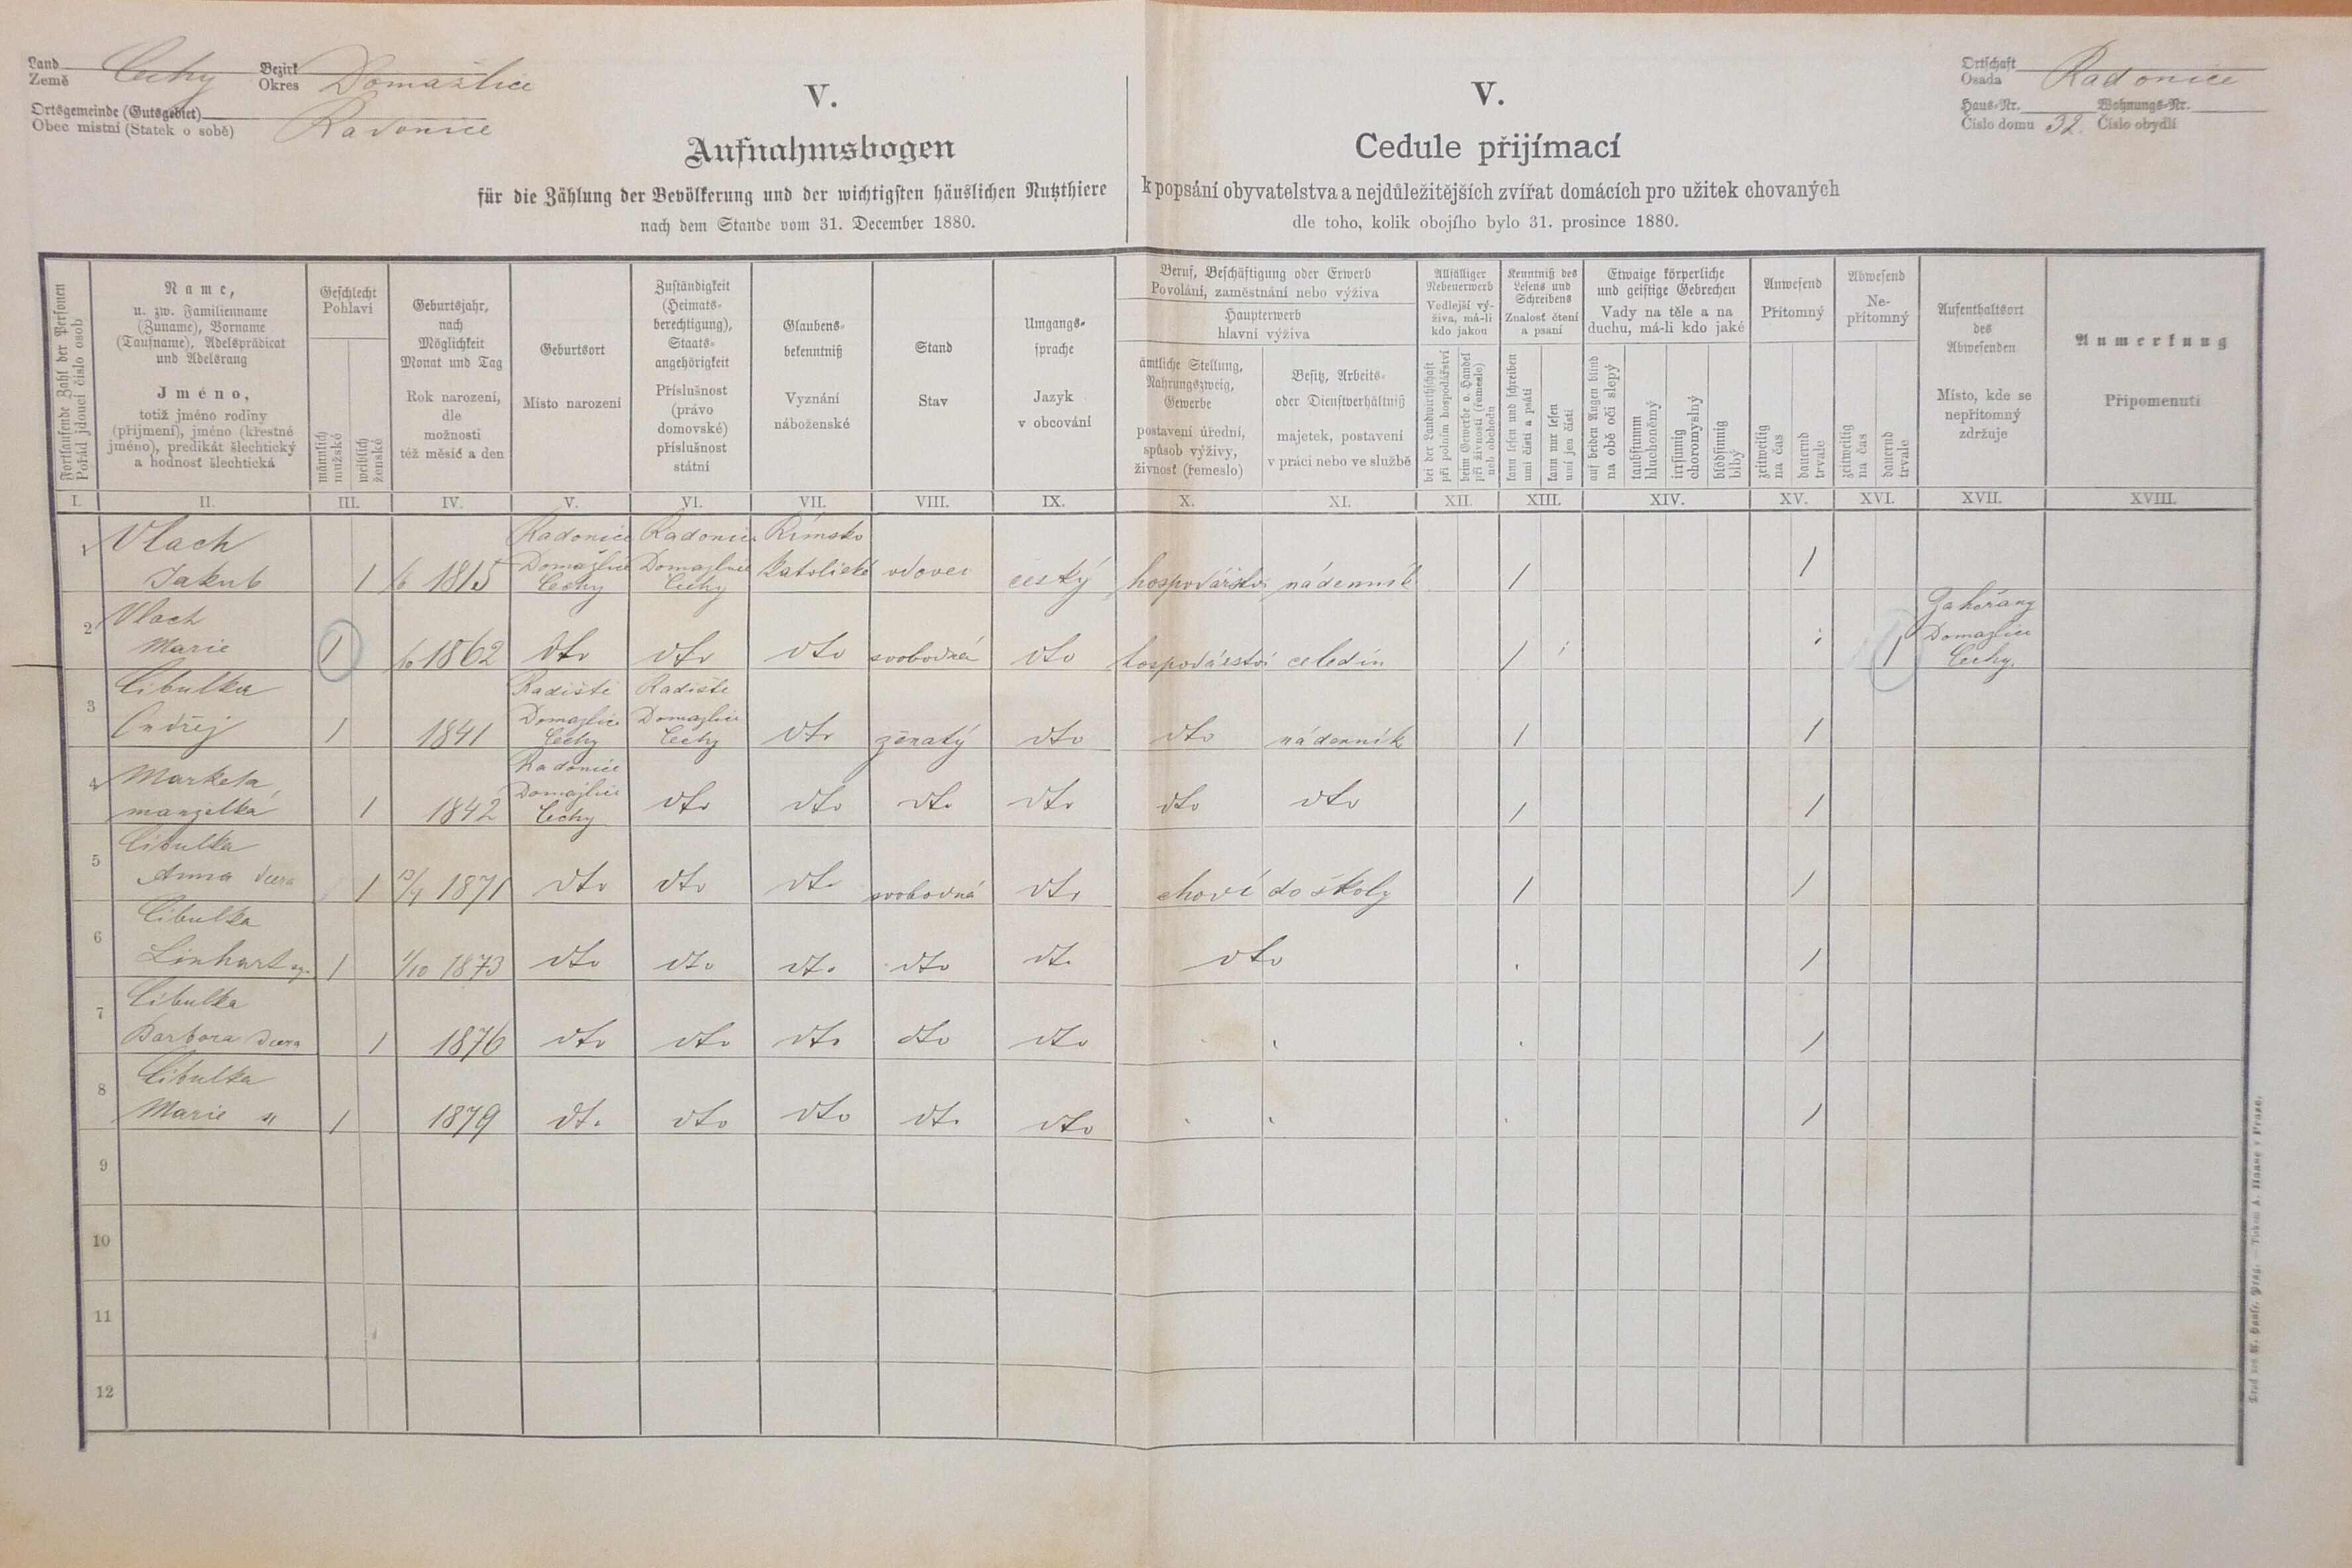 Land Čechy Bezirk Domažlice
Země Okres
Ortsgemeinde (Gutsgebiet) Radonice
Obec místní (Statek o sobě)
V.
Aufnahmsbogen
für die Zählung der Bevölkerung und der wichtigsten häuslichen Nutzthiere
nach dem Stande vom 31. December 1880.
V.
Cedule přijímací
k popsání obyvatelstva a nejdůležitějších zvířat domácích pro užitek chovaných
dle toho, kolik obojího bylo 31. prosince 1880.
Ortschaft Radonice
Osada
Haus-Nr. Wohnungs-Nr.
Číslo domu 32. Číslo obydlí
Fortlaufende Zahl der Personen
Pořád jdoucí číslo osob
Name,
u. zw. Familienname
(Zuname), Vorname
(Taufname), Adelsprädicat
und Adelsrang
Jméno,
totiž jméno rodiny
(příjmení), jméno (křestné
jméno), predikát šlechtický
a hodnosť šlechtická
Geschlecht
Pohlaví
männlich
mužské
weiblich
ženské
Geburtsjahr,
nach
Möglichkeit
Monat und Tag
Rok narození,
dle
možnosti
též měsíc a den
Geburtsort
Místo narození
Zuständigkeit
(Heimats-
berechtigung),
Staats-
angehörigkeit
Příslušnost
(právo
domovské)
příslušnost
státní
Glaubens-
bekenntniß
Vyznání
náboženské
Stand
Stav
Umgangs-
sprache
Jazyk
v obcování
Beruf, Beschäftigung oder Erwerb
Povolání, zaměstnání nebo výživa
Haupterwerb
hlavní výživa
ämtliche Stellung,
Nahrungszweig,
Gewerbe
postavení úřední,
spůsob výživy,
živnosť (řemeslo)
Besitz, Arbeits-
oder Dienstverhältniß
majetek, postavení
v práci nebo ve službě
Allfälliger
Nebenerwerb
Vedlejší vý-
živa, má-li
kdo jakou
bei der Landwirthschaft
při polním hospodářství
beim Gewerbe o. Handel
při živnosti (řemesle)
neb obchodu
Kenntniß des
Lesens und
Schreibens
Znalosť čtení
a psaní
kann lesen und schreiben
umí čísti a psáti
kann nur lesen
umí jen čísti
Etwaige körperliche
und geistige Gebrechen
Vady na těle a na
duchu, má-li kdo jaké
auf beiden Augen blind
na obě oči slepý
taubstumm
hluchoněmý
irrsinnig
choromyslný
blödsinnig
blbý
Anwesend
Přítomný
zeitweilig
na čas
dauernd
trvale
Abwesend
Ne-
přítomný
zeitweilig
na čas
dauernd
trvale
Aufenthaltsort
des
Abwesenden
Místo, kde se
nepřítomný
zdržuje
Anmerkung
Připomenutí
I. II. III. IV. V. VI. VII. VIII. IX. X. XI. XII. XIII. XIV. XV. XVI. XVII. XVIII.
Vlach Radonice Radonice Římsko
1 Domažlice Domažlice katolické vdovec
Jakub 1 1815 Čechy Čechy český hospodářství nádenník 1 1
Vlach Zahořany
2 Domažlice
Marie 1 1862 dto dto dto svobodná dto hospodářství čeledín 1 1 Čechy.
Cibulka Radiště Radiště
3 Domažlice Domažlice
Ondřej 1 1841 Čechy Čechy dto ženatý dto dto nádenník 1 1
Radonice
4 Marketa, Domažlice
manželka 1 1842 Čechy dto dto dto dto dto dto 1 1
5 Cibulka
Anna dcera 1 13/4 1871 dto dto dto svobodná dto chodí do školy 1 1
6 Cibulka
Linhart syn 1 1/10 1873 dto dto dto dto dto dto 1
7 Cibulka
Barbora dcera 1 1876 dto dto dto dto dto 1
8 Cibulka
Marie " 1 1879 dto dto dto dto dto 1
9
10
11
12